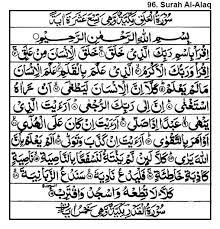 96. Surah Al-Alaq
سُوْرَةُ الْعَلَقِ مَكِّيَّةٌ وَّهِيَ تِسْعَ عَشْرَةَ اٰيَةً
بِسْمِ اللّٰهِ الرَّحْمٰنِ الرَّحِيْمِ
اِقْرَاْ بِاسْمِ رَبِّكَ الَّذِيْ خَلَقَ ۝ خَلَقَ الْاِنْسَانَ مِنْ عَلَقٍ ۝
اِقْرَاْ وَرَبُّكَ الْاَكْرَمُ ۝ الَّذِيْ عَلَّمَ بِالْقَلَمِ ۝ عَلَّمَ الْاِنْسَانَ
مَا لَمْ يَعْلَمْ ۝ كَلَّا اِنَّ الْاِنْسَانَ لَيَطْغٰى ۝ اَنْ رَّاٰهُ
اسْتَغْنٰى ۝ اِنَّ اِلٰى رَبِّكَ الرُّجْعٰى ۝ اَرَءَيْتَ الَّذِيْ يَنْهٰى ۝
عَبْدًا اِذَا صَلّٰى ۝ اَرَءَيْتَ اِنْ كَانَ عَلَى الْهُدٰى ۝
اَوْ اَمَرَ بِالتَّقْوٰى ۝ اَرَءَيْتَ اِنْ كَذَّبَ وَتَوَلّٰى ۝ اَلَمْ يَعْلَمْ بِاَنَّ
اللّٰهَ يَرٰى ۝ كَلَّا لَئِنْ لَّمْ يَنْتَهِ لَنَسْفَعًا بِالنَّاصِيَةِ ۝ نَاصِيَةٍ
كَاذِبَةٍ خَاطِئَةٍ ۝ فَلْيَدْعُ نَادِيَهٗ ۝ سَنَدْعُ الزَّبَانِيَةَ ۝
كَلَّا لَا تُطِعْهُ وَاسْجُدْ وَاقْتَرِبْ ۝
سُوْرَةُ الْقَدْرِ مَكِّيَّةٌ وَّهِيَ خَمْسُ اٰيَاتٍ